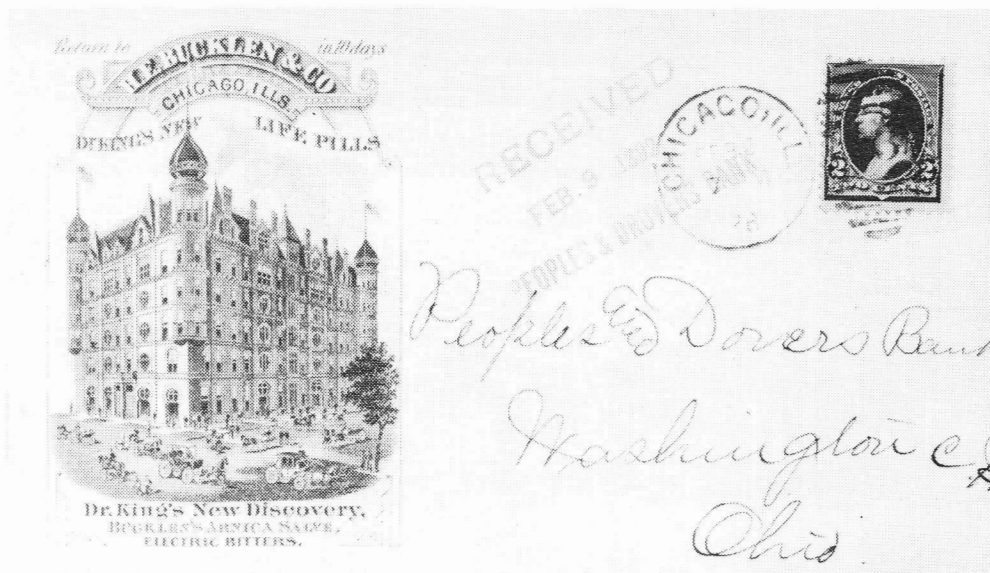 Return to in 10 days
H.E. BUCKLEN & CO
CHICAGO, ILLS.
DR KING'S NEW LIFE PILLS
Dr. King's New Discovery,
BUCKLEN'S ARNICA SALVE,
ELECTRIC BITTERS.
RECEIVED
FEB. 9
PEOPLES & DROVERS BANK
CHICAGO, ILL.
FEB
2 2
Peoples and Dovers Bank
Washington C.H.
Ohio